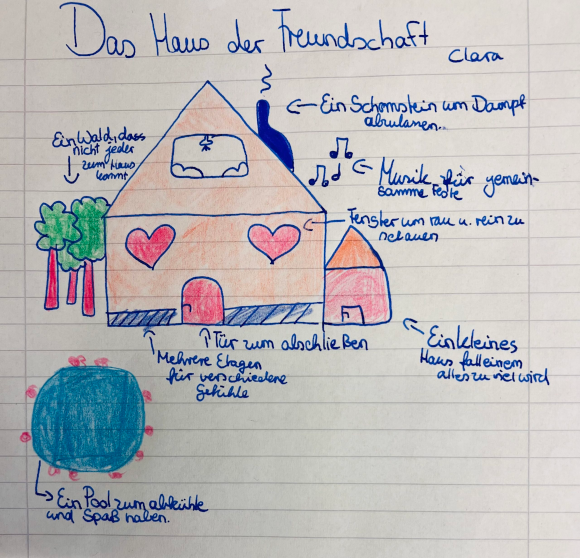 Das Haus der Freundschaft
Clara
Ein Schornstein um Dampf
abzulassen..
Ein Wald, dass
nicht jeder
zum Haus
kommt
Musik für gemein-
samme Feste
Fenster um rau u. rein zu
schauen
Tür zum abschließen
Mehrere Etagen
für verschiedene
Gefühle
Ein kleines
Haus fall einem
alles zu viel wird
Ein Pool zum abkühle
und Spaß haben.